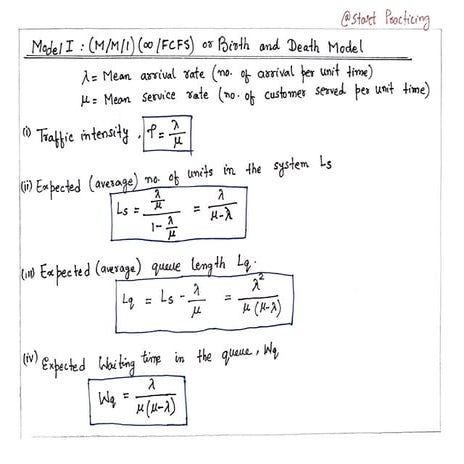 @Start Practicing
Model I : (M/M/1) (∞/FCFS) or Birth and Death Model
λ = Mean arrival rate (no. of arrival per unit time)
μ = Mean service rate (no. of customer served per unit time)
(i) Traffic intensity, ρ = λ/μ
(ii) Expected (average) no. of units in the system Ls
Ls = (λ/μ)/(1-λ/μ) = λ/(μ-λ)
(iii) Expected (average) queue length Lq.
Lq = Ls - λ/μ = λ²/(μ(μ-λ))
(iv) Expected Waiting time in the queue, Wq
Wq = λ/(μ(μ-λ))